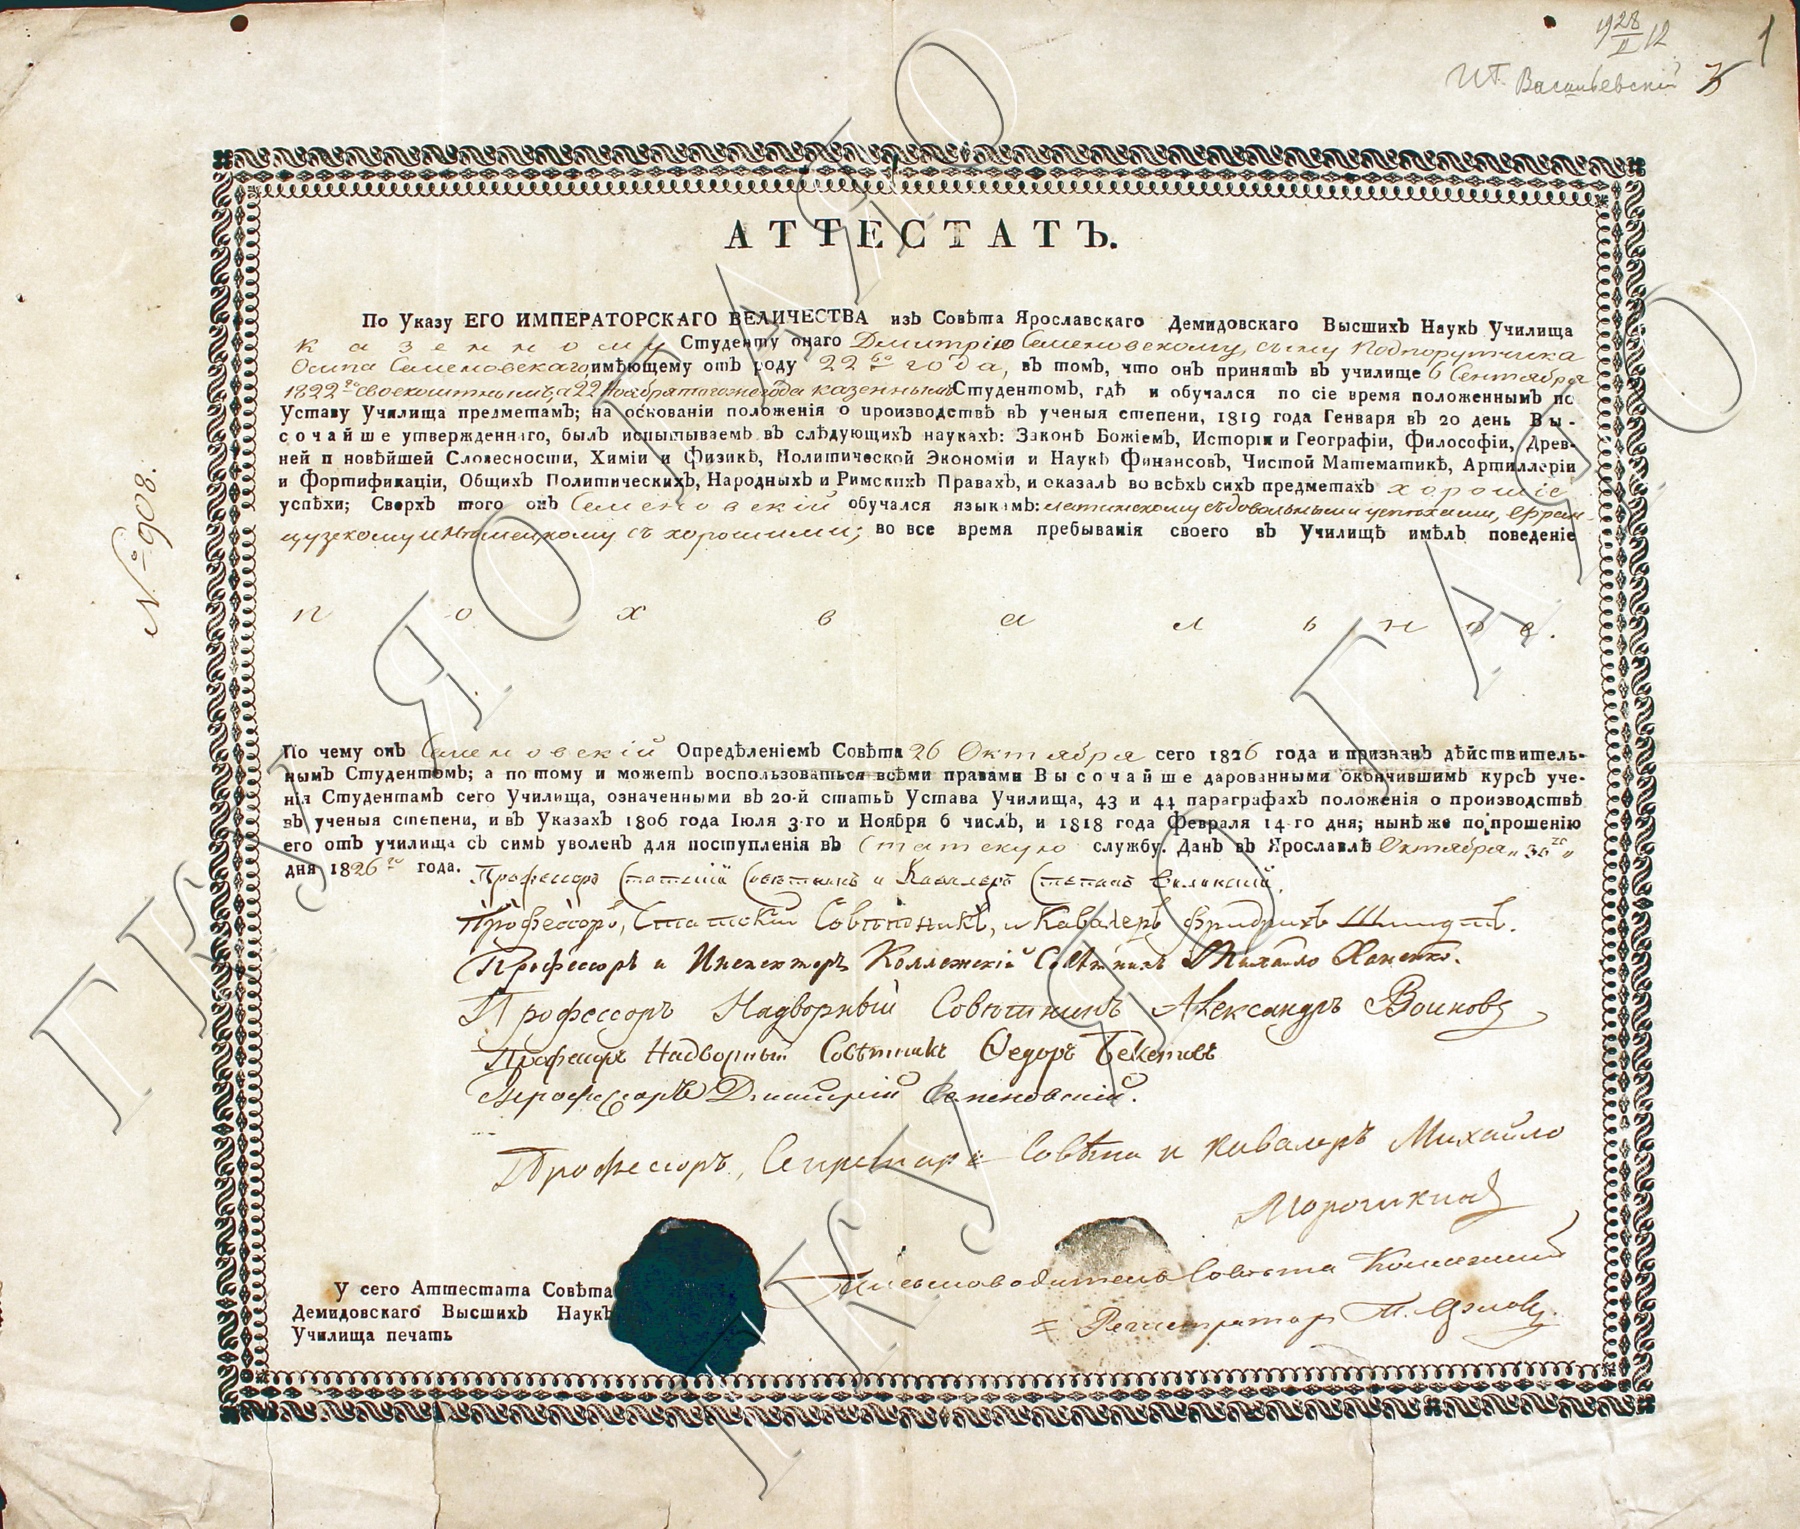 1928/II 12
Васильевскій
1
АТТЕСТАТЪ.
По Указу ЕГО ИМПЕРАТОРСКАГО ВЕЛИЧЕСТВА изъ Совѣта Ярославскаго Демидовскаго Высшихъ Наукъ Училища
казенному Студенту онаго Дмитрію Семеновскому, сыну Подпорутчика
Осипа Семеновскаго, имѣющему отъ роду 22 года, въ томъ, что онъ принятъ въ училище 6 Сентября
1822го своекоштнымъ, а 22 Ноября того же года казеннымъ Студентомъ, гдѣ и обучался по сіе время положеннымъ по
Уставу Училища предметамъ; на оскованіи положенія о производствѣ въ ученыя степени, 1819 года Генваря въ 20 день Вы-
сочайше утвержденнаго, былъ испытываемъ въ слѣдующихъ наукахъ: Законѣ Божіемъ, Исторіи и Географіи, Философіи, Древ-
ней и новѣйшей Словесности, Химіи и Физикѣ, Политической Экономіи и Наукѣ Финансовъ, Чистой Математикѣ, Артиллеріи
и Фортификаціи, Общихъ Политическихъ, Народныхъ и Римскихъ Правахъ, и оказалъ во всѣхъ сихъ предметахъ хорошіе
успѣхи; Сверхъ того онъ Семеновскій обучался языкамъ: латинскому съ довольными успѣхами, Фран-
цузскому и Нѣмецкому съ хорошими; во все время пребыванія своего въ Училищѣ имѣлъ поведеніе
№ 908.
похвальное.
По чему онъ Семеновскій Опредѣленіемъ Совѣта 26 Октября сего 1826 года и признанъ дѣйствитель-
нымъ Студентомъ; а по тому и можетъ воспользоваться всѣми правами Высочайше дарованными окончившимъ курсъ уче-
нія Студентамъ сего Училища, означенными въ 20-й статьѣ Устава Училища, 43 и 44 параграфахъ положенія о производствѣ
въ ученыя степени, и въ Указахъ 1806 года Іюля 3-го и Ноября 6 числъ, и 1818 года Февраля 14-го дня; нынѣ же по прошенію
его отъ училища съ симъ уволенъ для поступленія въ Статскую службу. Данъ въ Ярославлѣ Октября „30го„
дня 1826го года.
Профессоръ Статскій Совѣтникъ и Кавалеръ Степанъ Вилинскій.
Профессоръ, Статскій Совѣтникъ, и Кавалеръ Фридрихъ Шмидтъ.
Профессоръ и Инспекторъ Коллежскій Совѣтникъ Михайло Ханенко.
Профессоръ Надворный Совѣтникъ Александръ Воиновъ
Профессоръ Надворный Совѣтникъ Ѳедоръ Бекетовъ
Профессоръ Дмитрій Семеновскій.
Профессоръ, Секретарь Совѣта и Кавалеръ Михайло
Морошкинъ
Письмоводитель Совѣта Коллежскій
Регистраторъ П. Орловъ.
У сего Аттестата Совѣта
Демидовскаго Высшихъ Наукъ
Училища печать
ГКУ ЯО ГАЯО
ГКУ ЯО ГАЯО